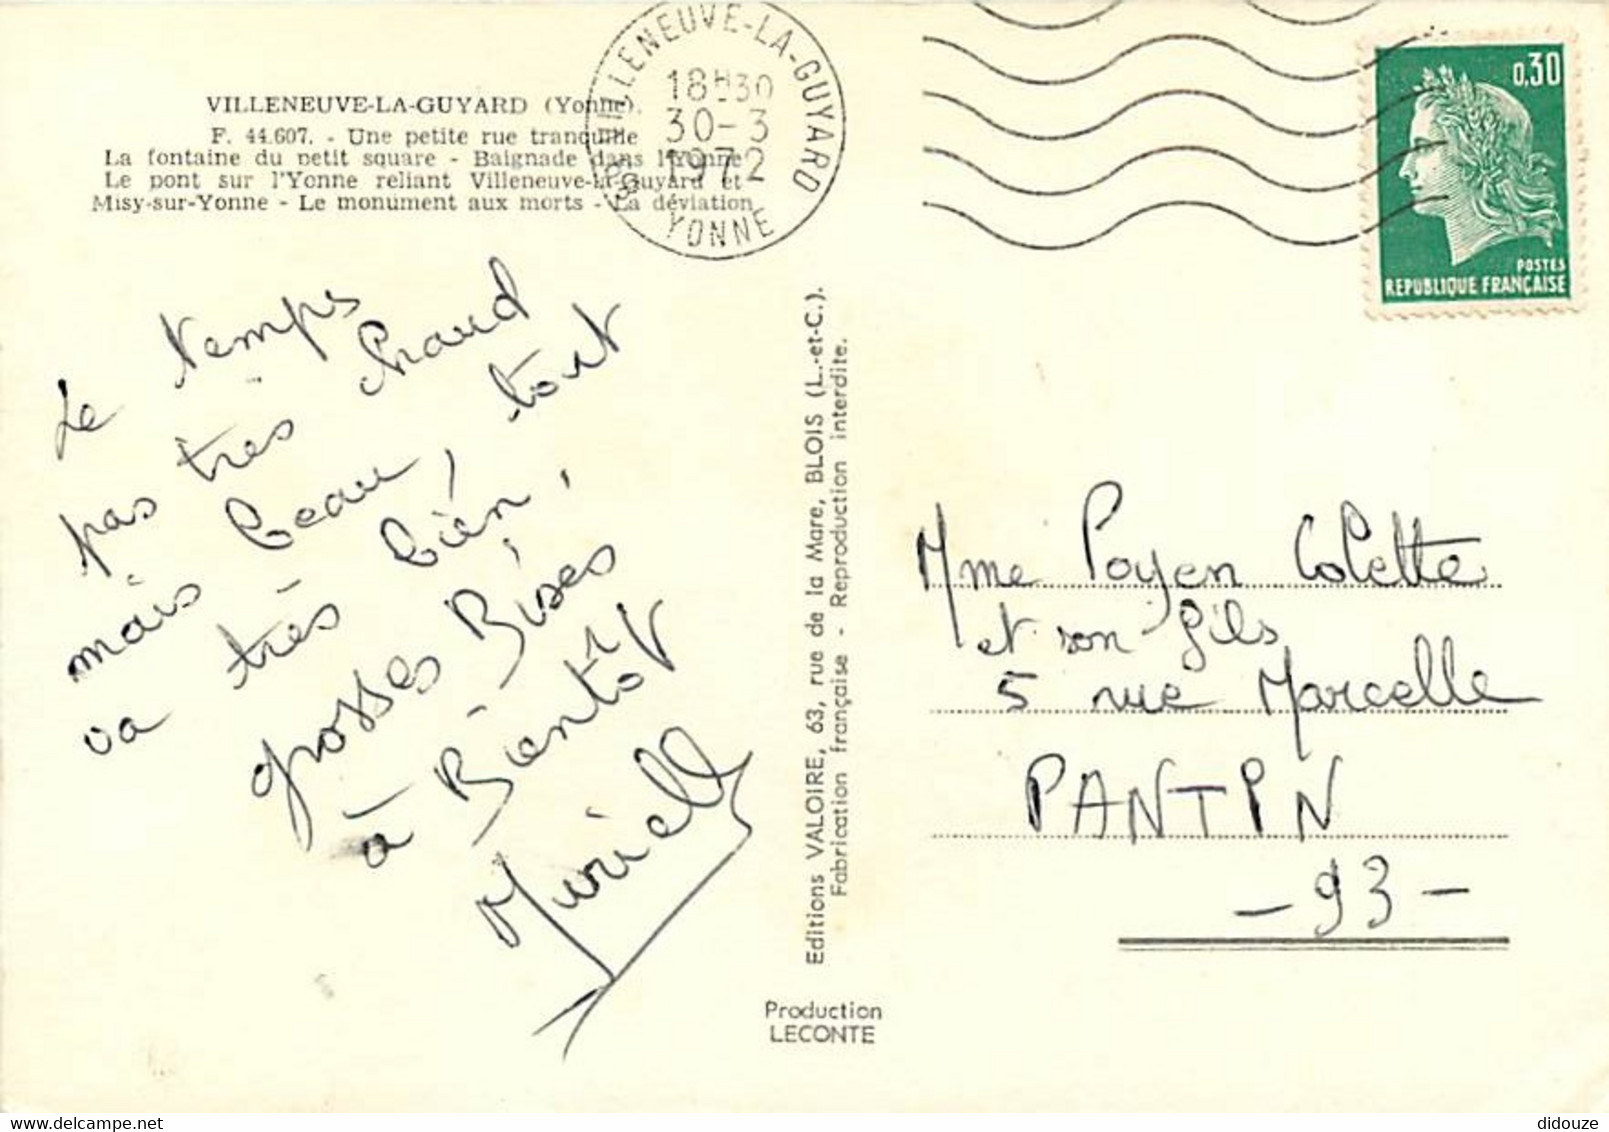 VILLENEUVE-LA-GUYARD (Yonne).
F. 44.607. - Une petite rue tranquille
La fontaine du petit square - Baignade dans l'Yonne
Le pont sur l'Yonne reliant Villeneuve-la-Guyard et
Misy-sur-Yonne - Le monument aux morts - La déviation
89 VILLENEUVE-LA-GUYARD
18H30
30-3
1972
YONNE
0,30
POSTES
REPUBLIQUE FRANÇAISE
Le temps
pas très chaud
mais beau, tout
va très bien,
grosses Bises
à Bientôt
Murielle
Editions VALOIRE, 63, rue de la Mare, BLOIS (L.-et-C.).
Fabrication française - Reproduction interdite.
Mme Poyen Colette
et son fils
5 rue Marcelle
PANTIN
- 93 -
Production
LECONTE
didouze